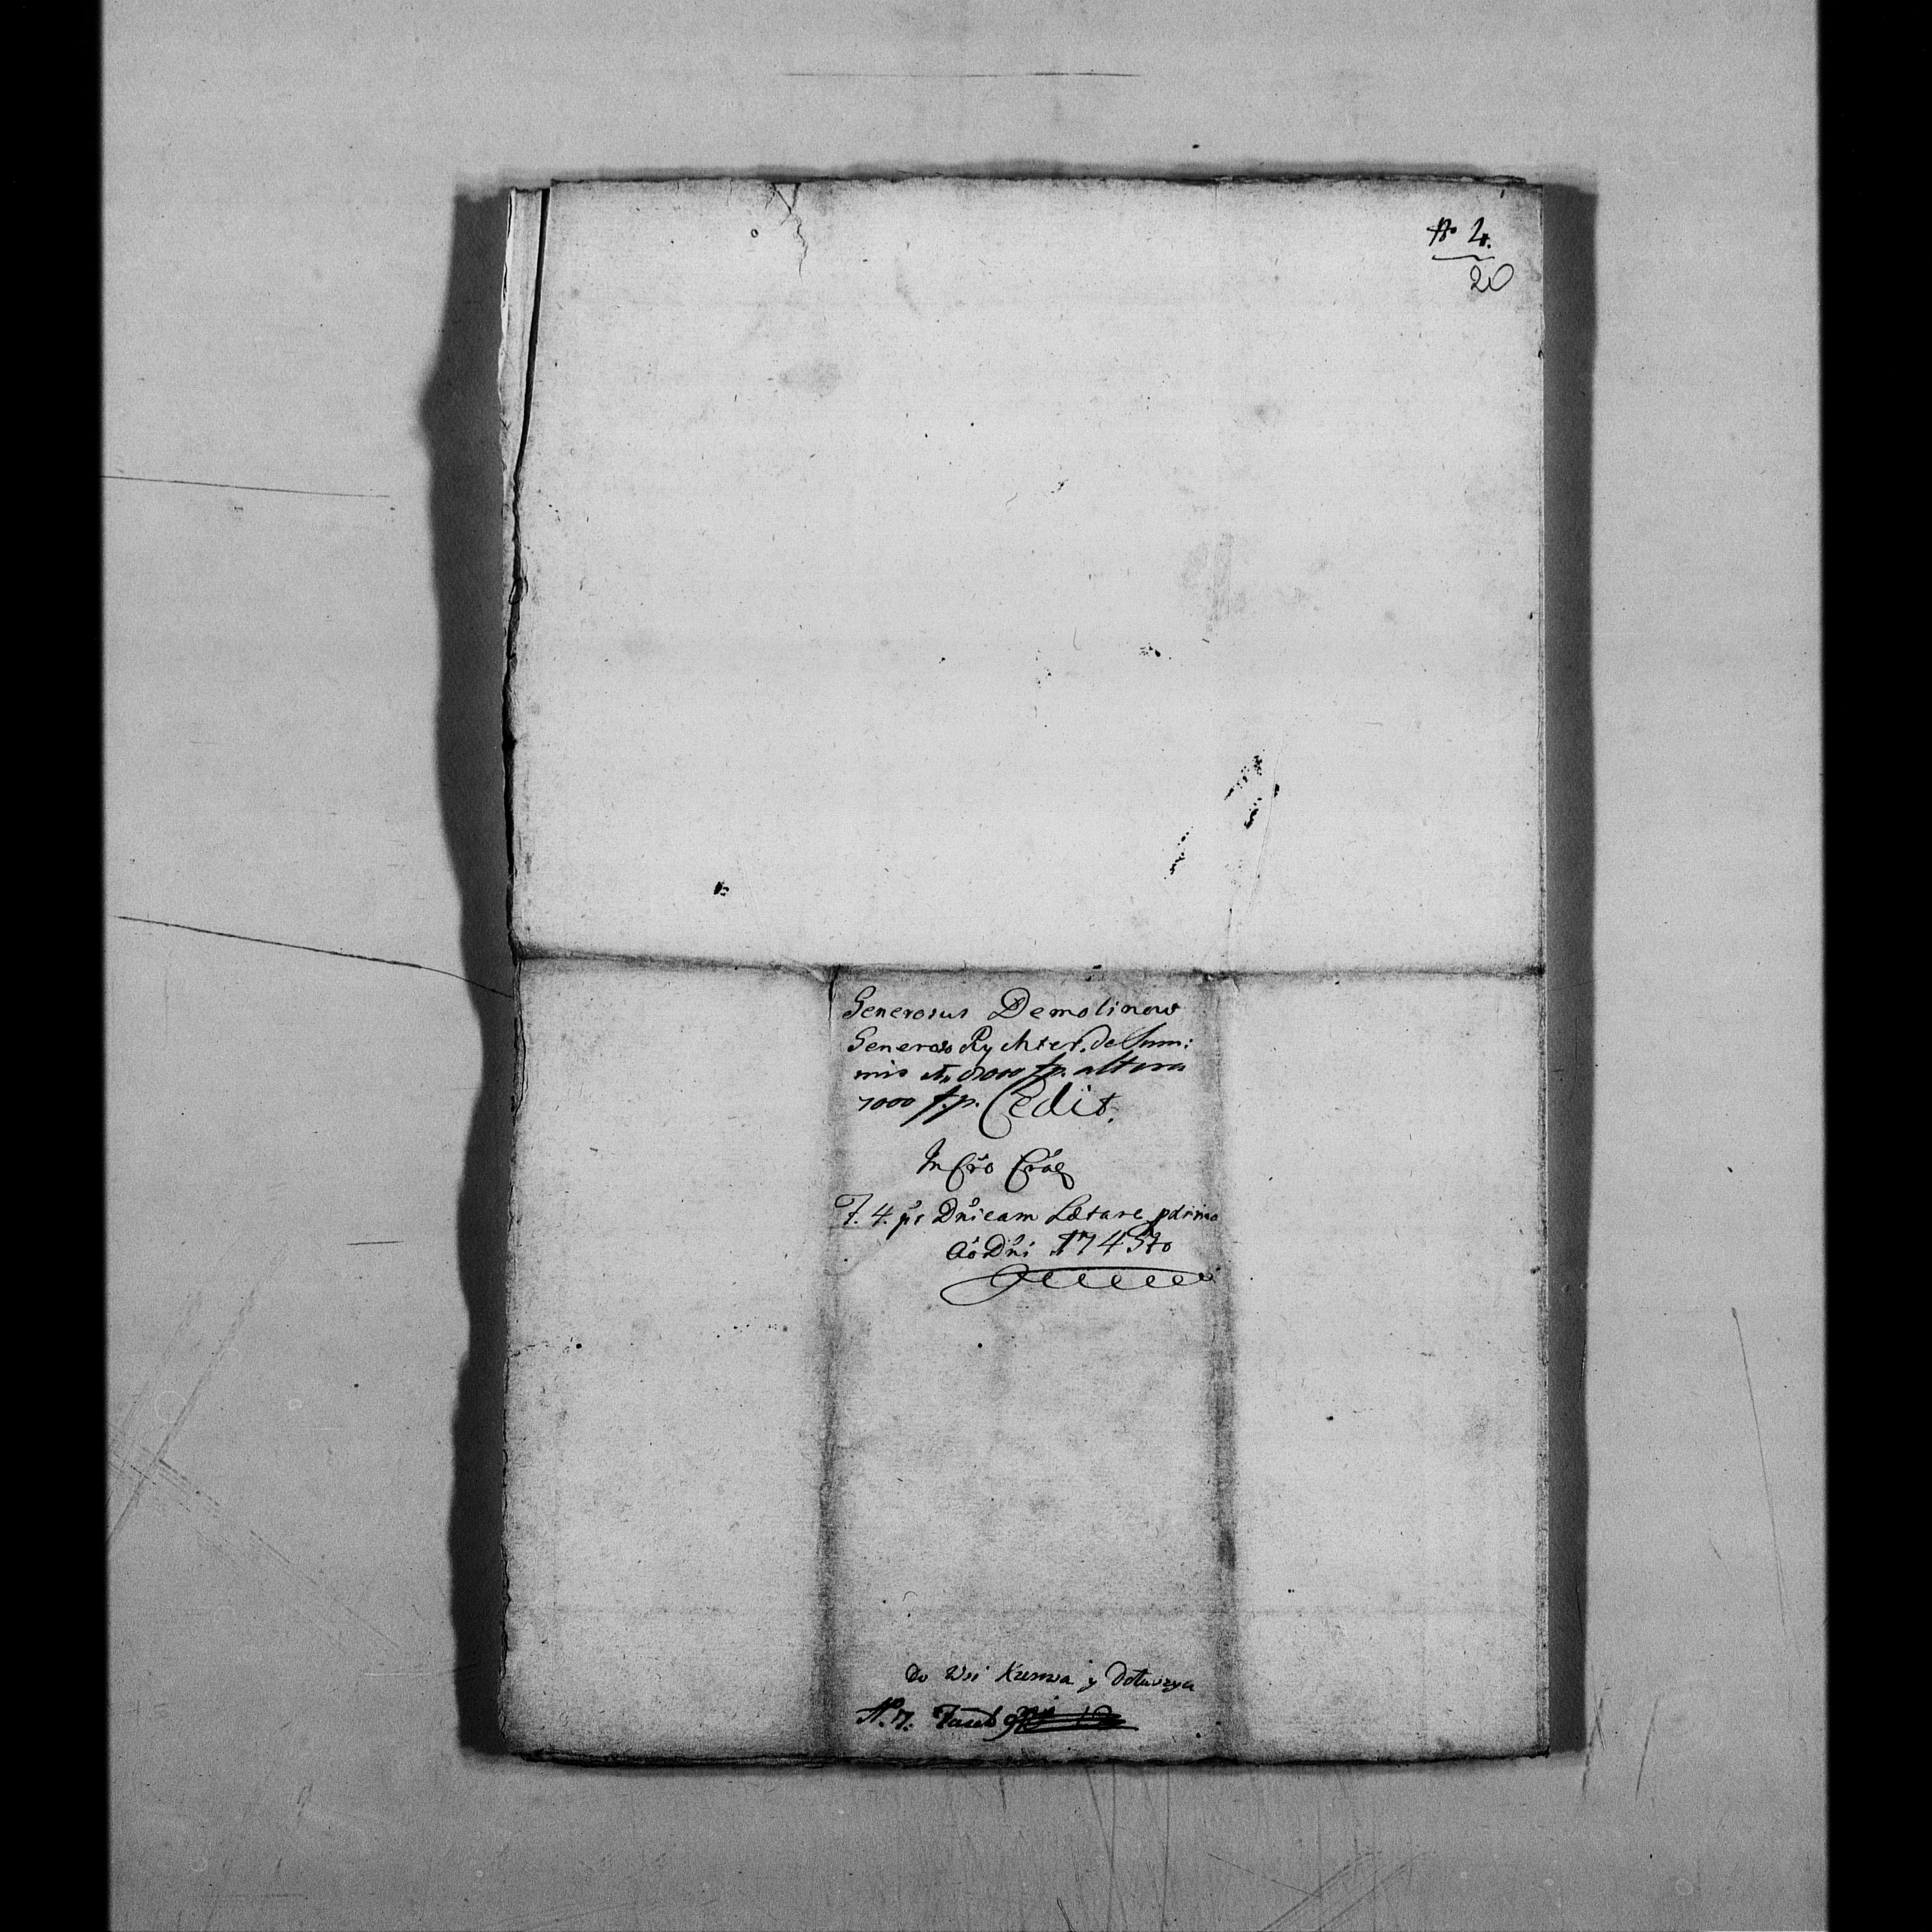 No 4.
20
Generosus Demolinow
Generoso Rychter. de Sum:
mis 8000 fp. altera
1000 f.p. Cedit.
In Cro Crac
F. 4. ps Dnicam Lætare pdrima
Ao Dni 1745to
Do Wsi y
N. 7. Fasc